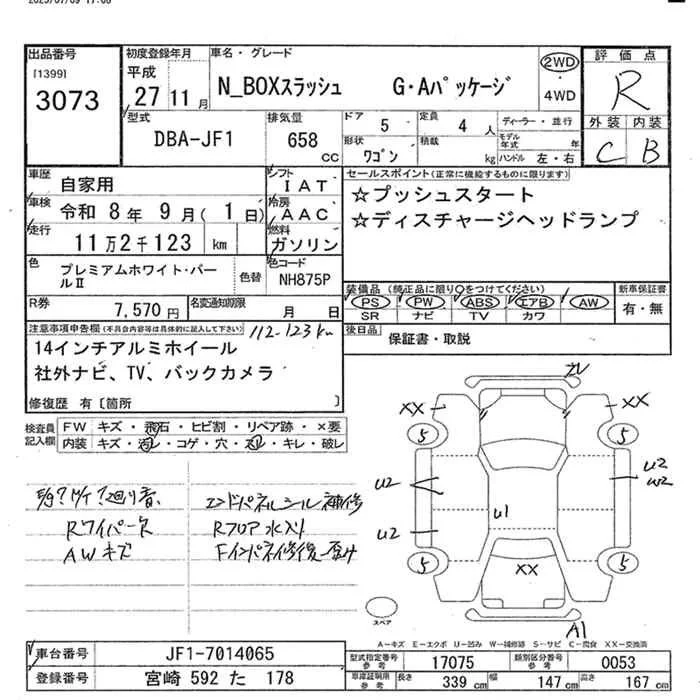 出品番号
[1399]
3073
初度登録年月
平成
27 11月
車名・グレード
N_BOXスラッシュ G・Aパッケージ
2WD
4WD
評価点
R
外装 内装
C B
型式
DBA-JF1
排気量
658
cc
ドア
5
定員
4人
ディーラー・並行
形状
ワゴン
積載
kg
モデル年式 年
ハンドル 左・右
車歴
自家用
シフト
IAT
車検
令和 8年 9月( 1日)
冷房
AAC
走行
11万2千123 km
燃料
ガソリン
セールスポイント(正常に機能するものに限ります)
☆プッシュスタート
☆ディスチャージヘッドランプ
色
プレミアムホワイト・パールⅡ
色替
色コード
NH875P
装備品 (純正品に限り○をつけてください)
PS PW ABS エアB AW
SR ナビ TV カワ
新車保証書
有・無
R券
7,570円
名変通知期限
月 日
後日品
保証書・取説
注意事項申告欄(不具合内容等は具体的に記入して下さい)
112-123km
14インチアルミホイール
社外ナビ、TV、バックカメラ
修復歴 有〔箇所 〕
検査員記入欄
FW キズ・飛石・ヒビ割・リペア跡・×要
内装 キズ・汚レ・コゲ・穴・スレ・キレ・破レ
廻り音、
Rワイパー欠
AWキズ
エンドパネルシール補修
Rフロア水入り
Fインパネ修復歪み
XX
XX
5
5
5
5
U2
U2
U2
W2
U1
XX
A1
スペア
A-キズ E-エクボ U-凹み W-補修跡 S-サビ C-腐食 XX-交換済
車台番号
JF1-7014065
登録番号
宮崎 592 た 178
型式指定番号
参考
17075
類別区分番号
参考
0053
車庫証明用
参考
長さ
339 cm
幅
147 cm
高さ
167 cm